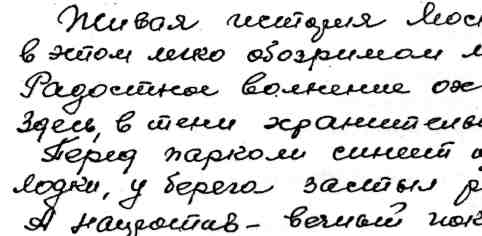 Живая история Мос
в этом легко обозримом м
Радостное волнение ох
Здесь, в тени хранитель
Перед парком синеет
Лодки, у берега застыл р
А напротив - вечный пок